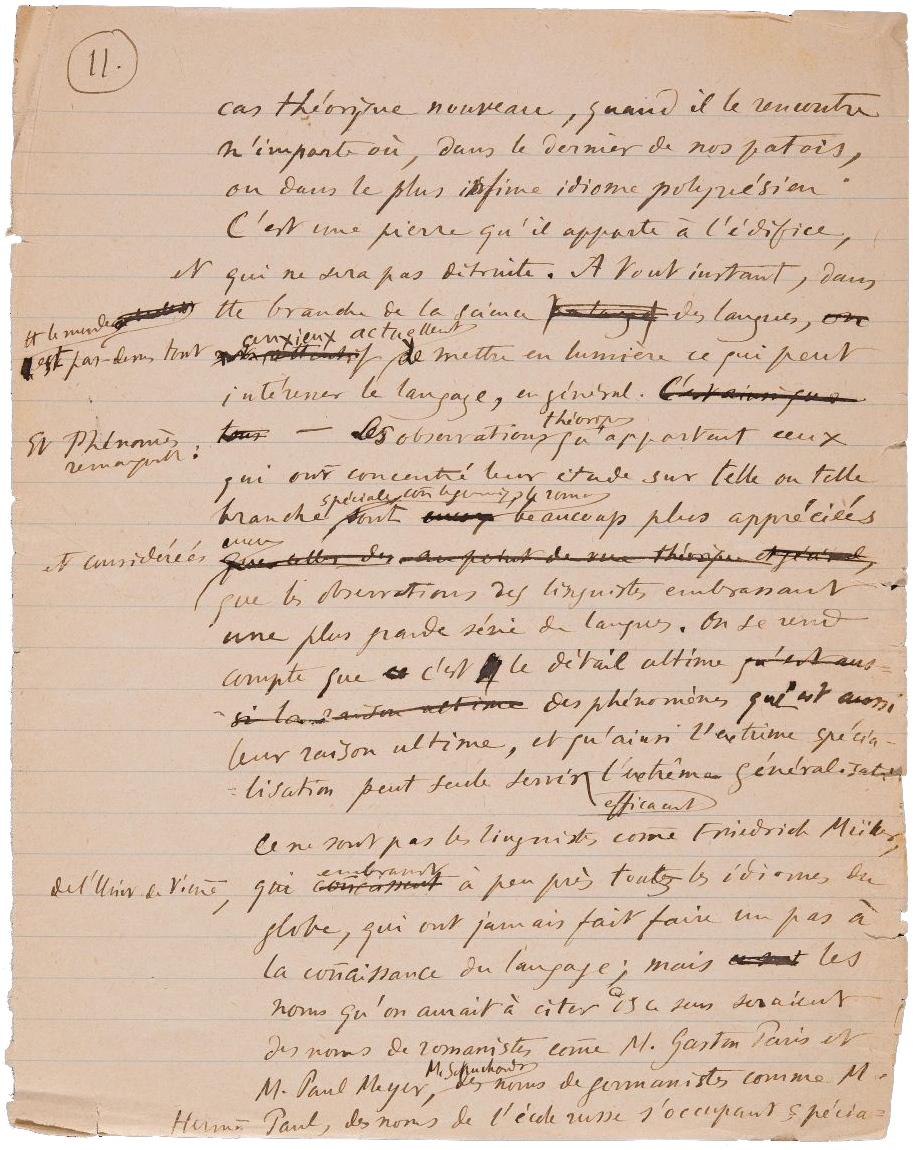 11.
cas théorique nouveau, quand il le rencontre
n'importe où, dans le dernier de nos patois,
ou dans le plus infime idiome polynésien
C'est une pierre qu'il apporte à l'édifice,
et qui ne sera pas détruite. A tout instant, dans
tte branche de la science des langues, on
tt le monde
est par-dessus tout anxieux actuellemt de mettre en lumière ce qui peut
intéresser le langage, en général. C'est ainsi que
tous — Les observations théoriqs qu'apportent ceux
Et Phénomès
remarquable:
qui ont concentré leur étude sur telle ou telle
branche spéciale sont encore beaucoup plus appréciées
et considérées
que celles des au point de vue théorique et général,
que les observations des linguistes embrassant
une plus grande série de langues. On se rend
compte que ce c'est le détail ultime qu'est aus=
si la raison ultime des phénomènes qui est aussi
leur raison ultime, et qu'ainsi l'extrême spécia-
=lisation peut seule servir l'extrême généralisati
efficacemt
Ce ne sont pas les linguistes come Friedrich Müller,
de l'Univ. de Viene, qui embrassent à peu près toutes les idiomes du
globe, qui ont jamais fait faire un pas à
la conaissance du langage; mais ce sont les
noms qu'on aurait à citer ds ce sens seraient
des noms de romanistes come M. Gaston Paris et
M. Paul Meyer, M. Schuchardt des noms de germanistes comme M.
Herman Paul, des noms de l'école russe s'occupant spécia=